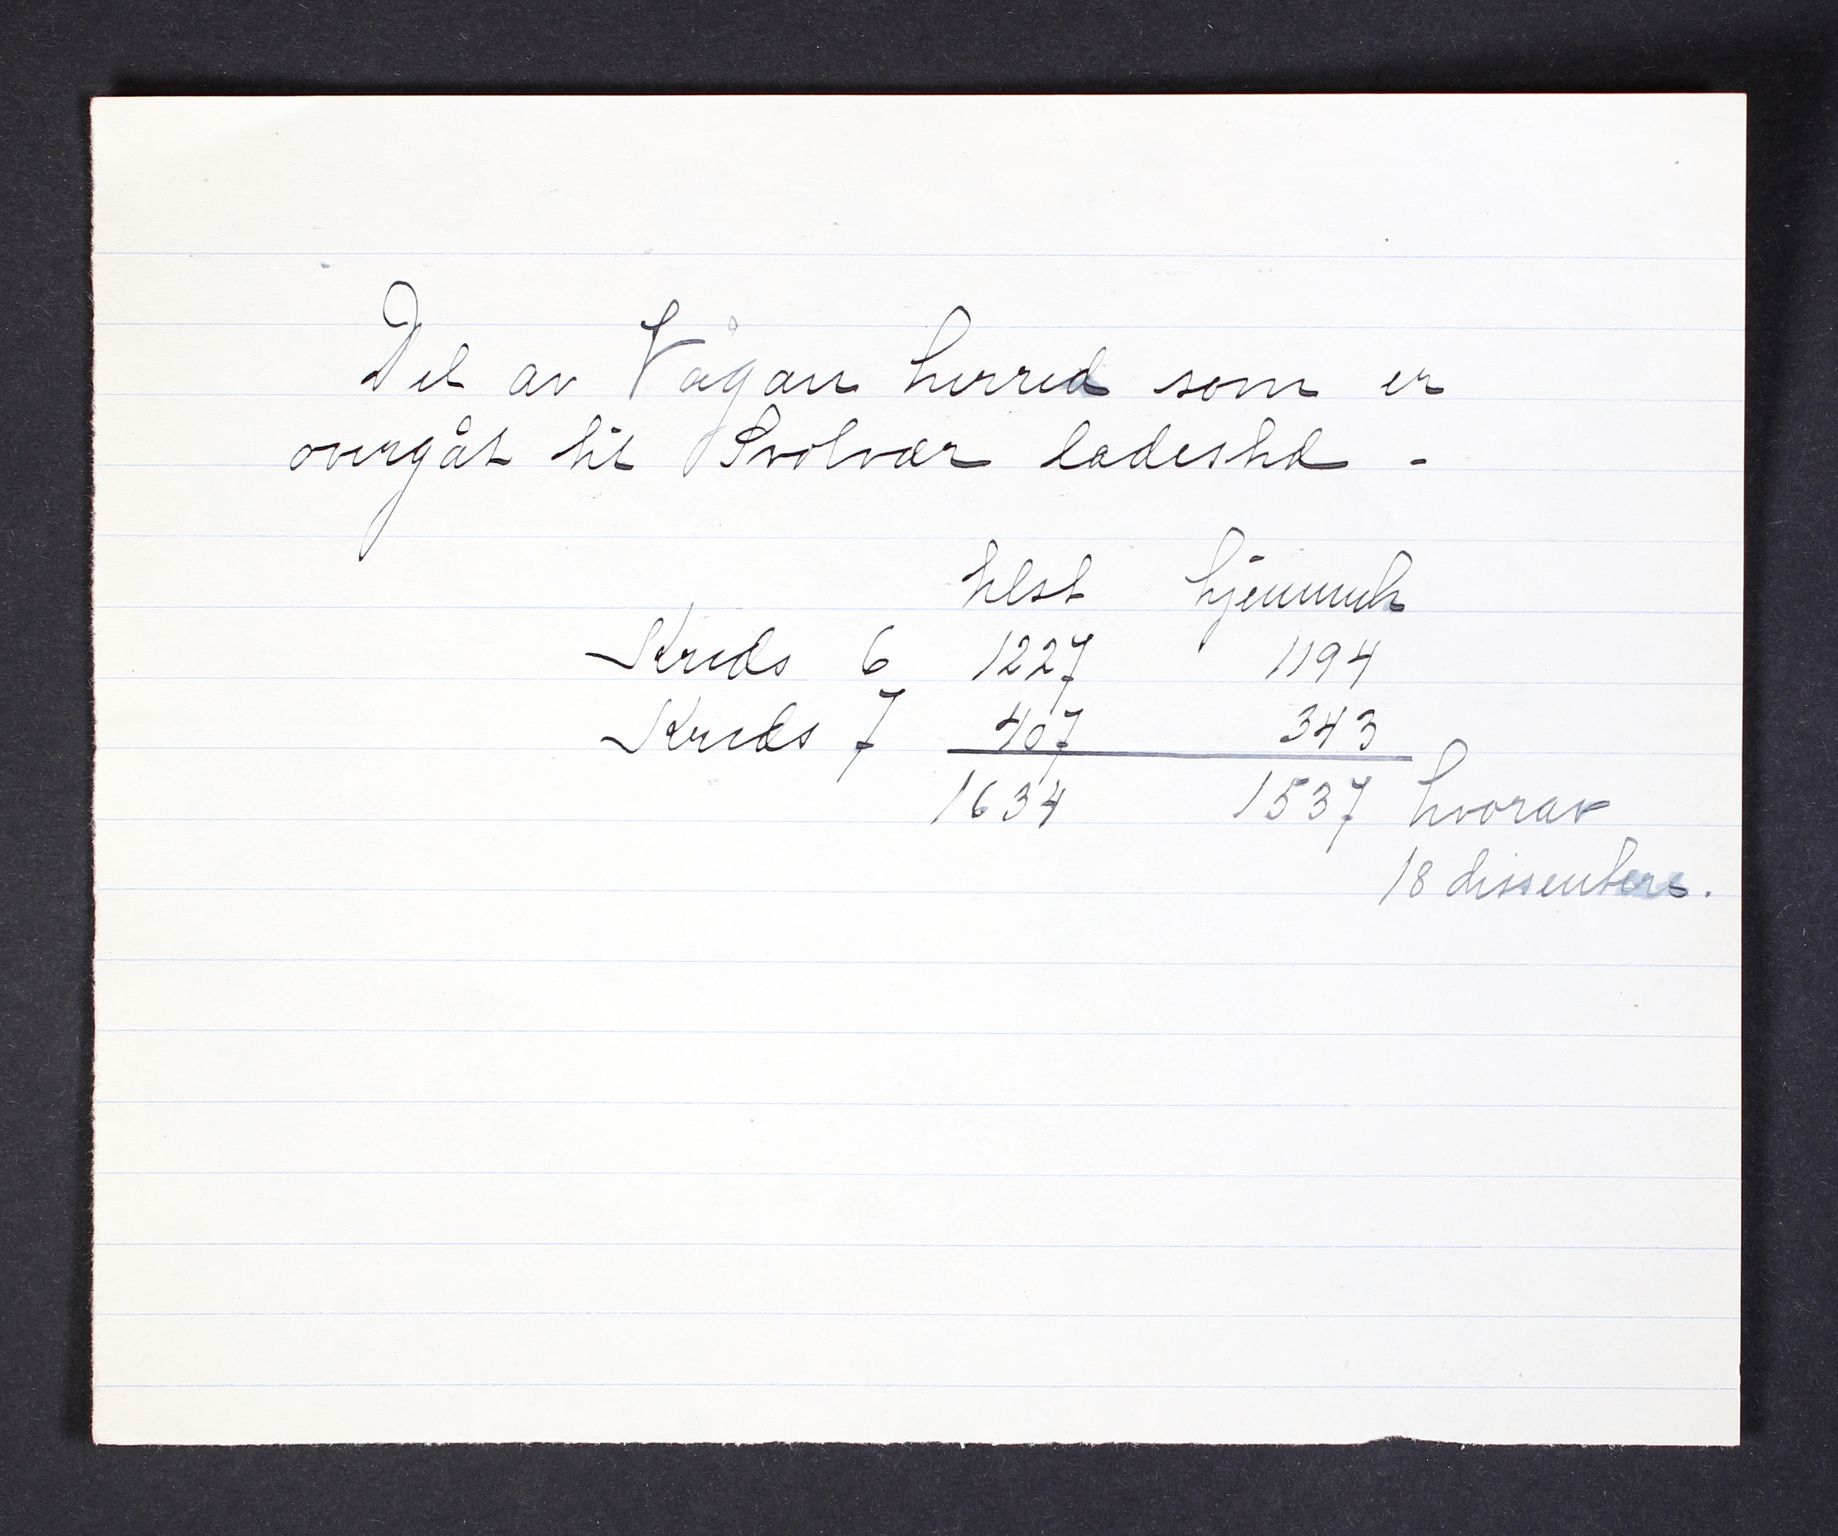 Del av Vågan herred som er
overgåt til Svolvær ladested -
tilst hjemmeh
Kreds 6 1227 1194
Kreds 7 407 343
1634 1537 hvorav
18 dissentere.